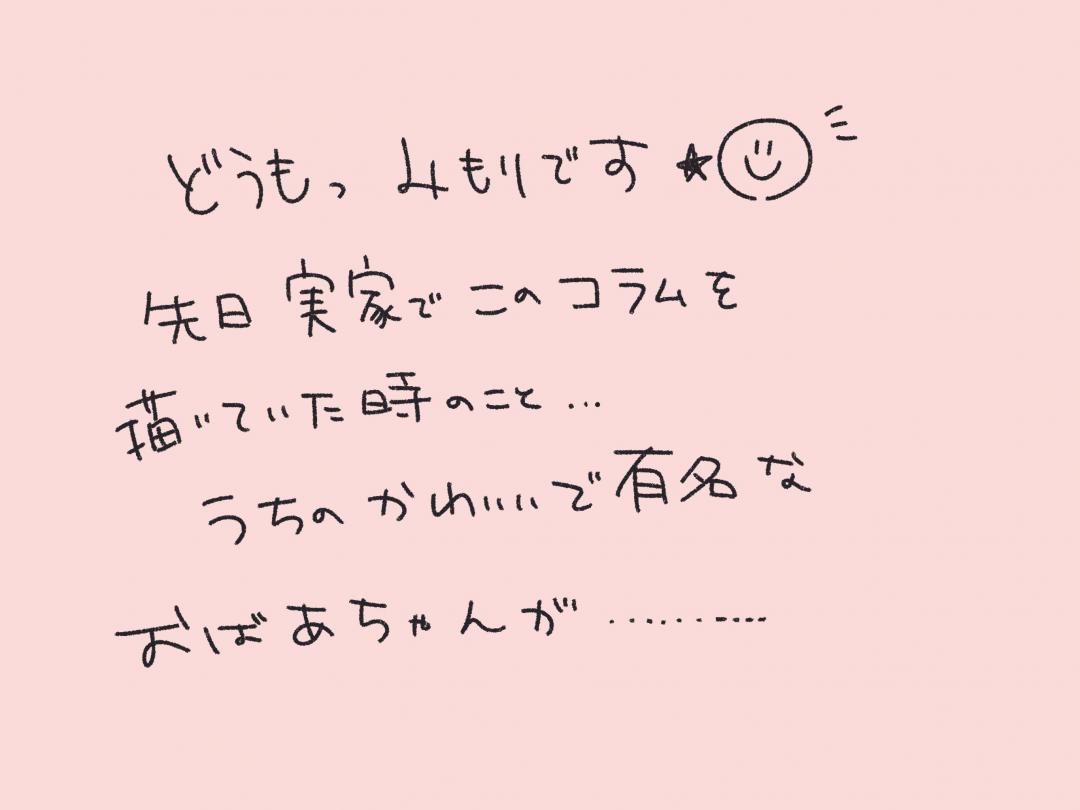 どうもっ みもりです★
先日 実家で このコラムを
描いていた時のこと…
うちの かわいいで有名な
おばあちゃんが…………